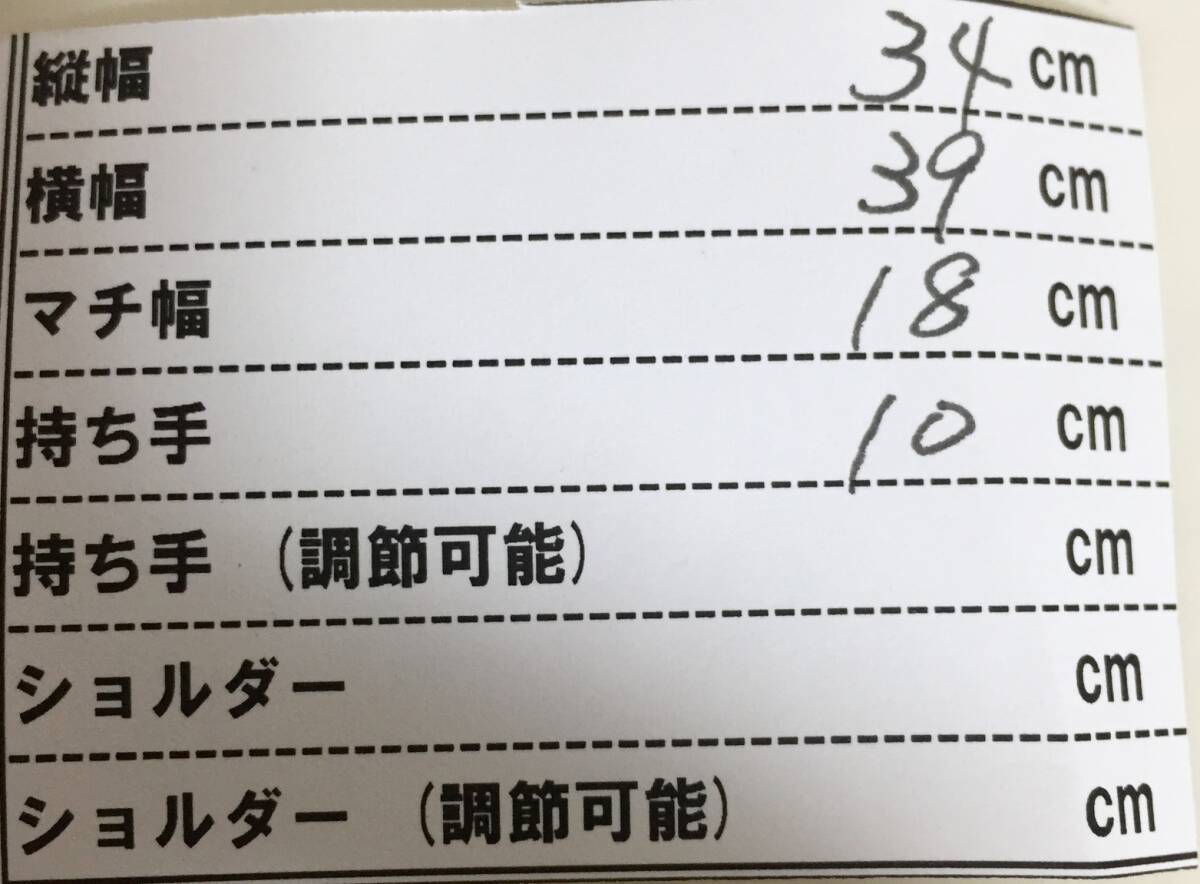 縦幅 34 cm
横幅 39 cm
マチ幅 18 cm
持ち手 10 cm
持ち手 (調節可能) cm
ショルダー cm
ショルダー (調節可能) cm